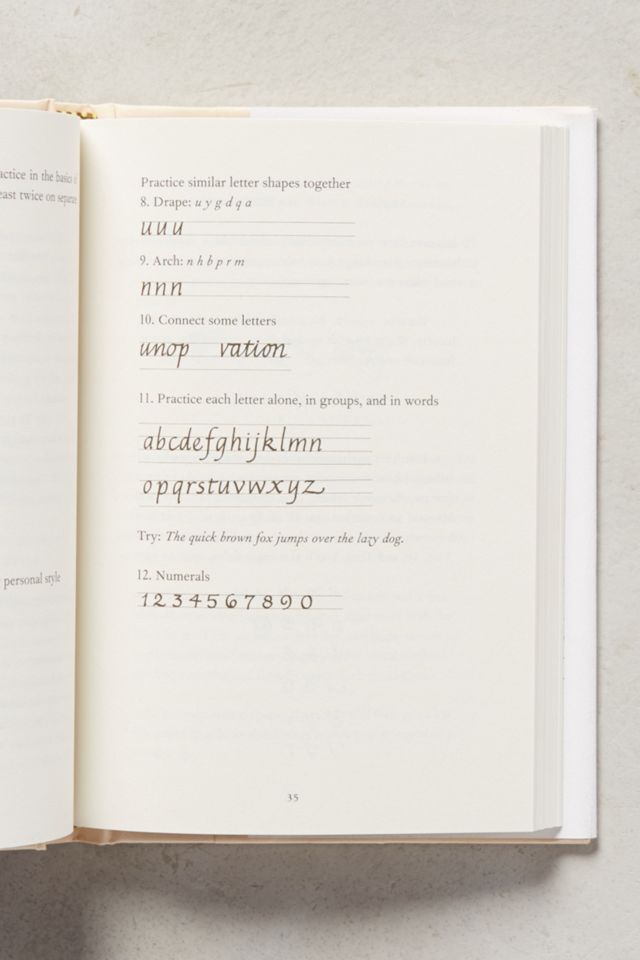 actice in the basics of
east twice on separate
personal style
Practice similar letter shapes together
8. Drape: u y g d q a
u u u
9. Arch: n h b p r m
n n n
10. Connect some letters
unop vation
11. Practice each letter alone, in groups, and in words
abcdefghijklmn
opqrstuvwxyz
Try: The quick brown fox jumps over the lazy dog.
12. Numerals
1 2 3 4 5 6 7 8 9 0
35